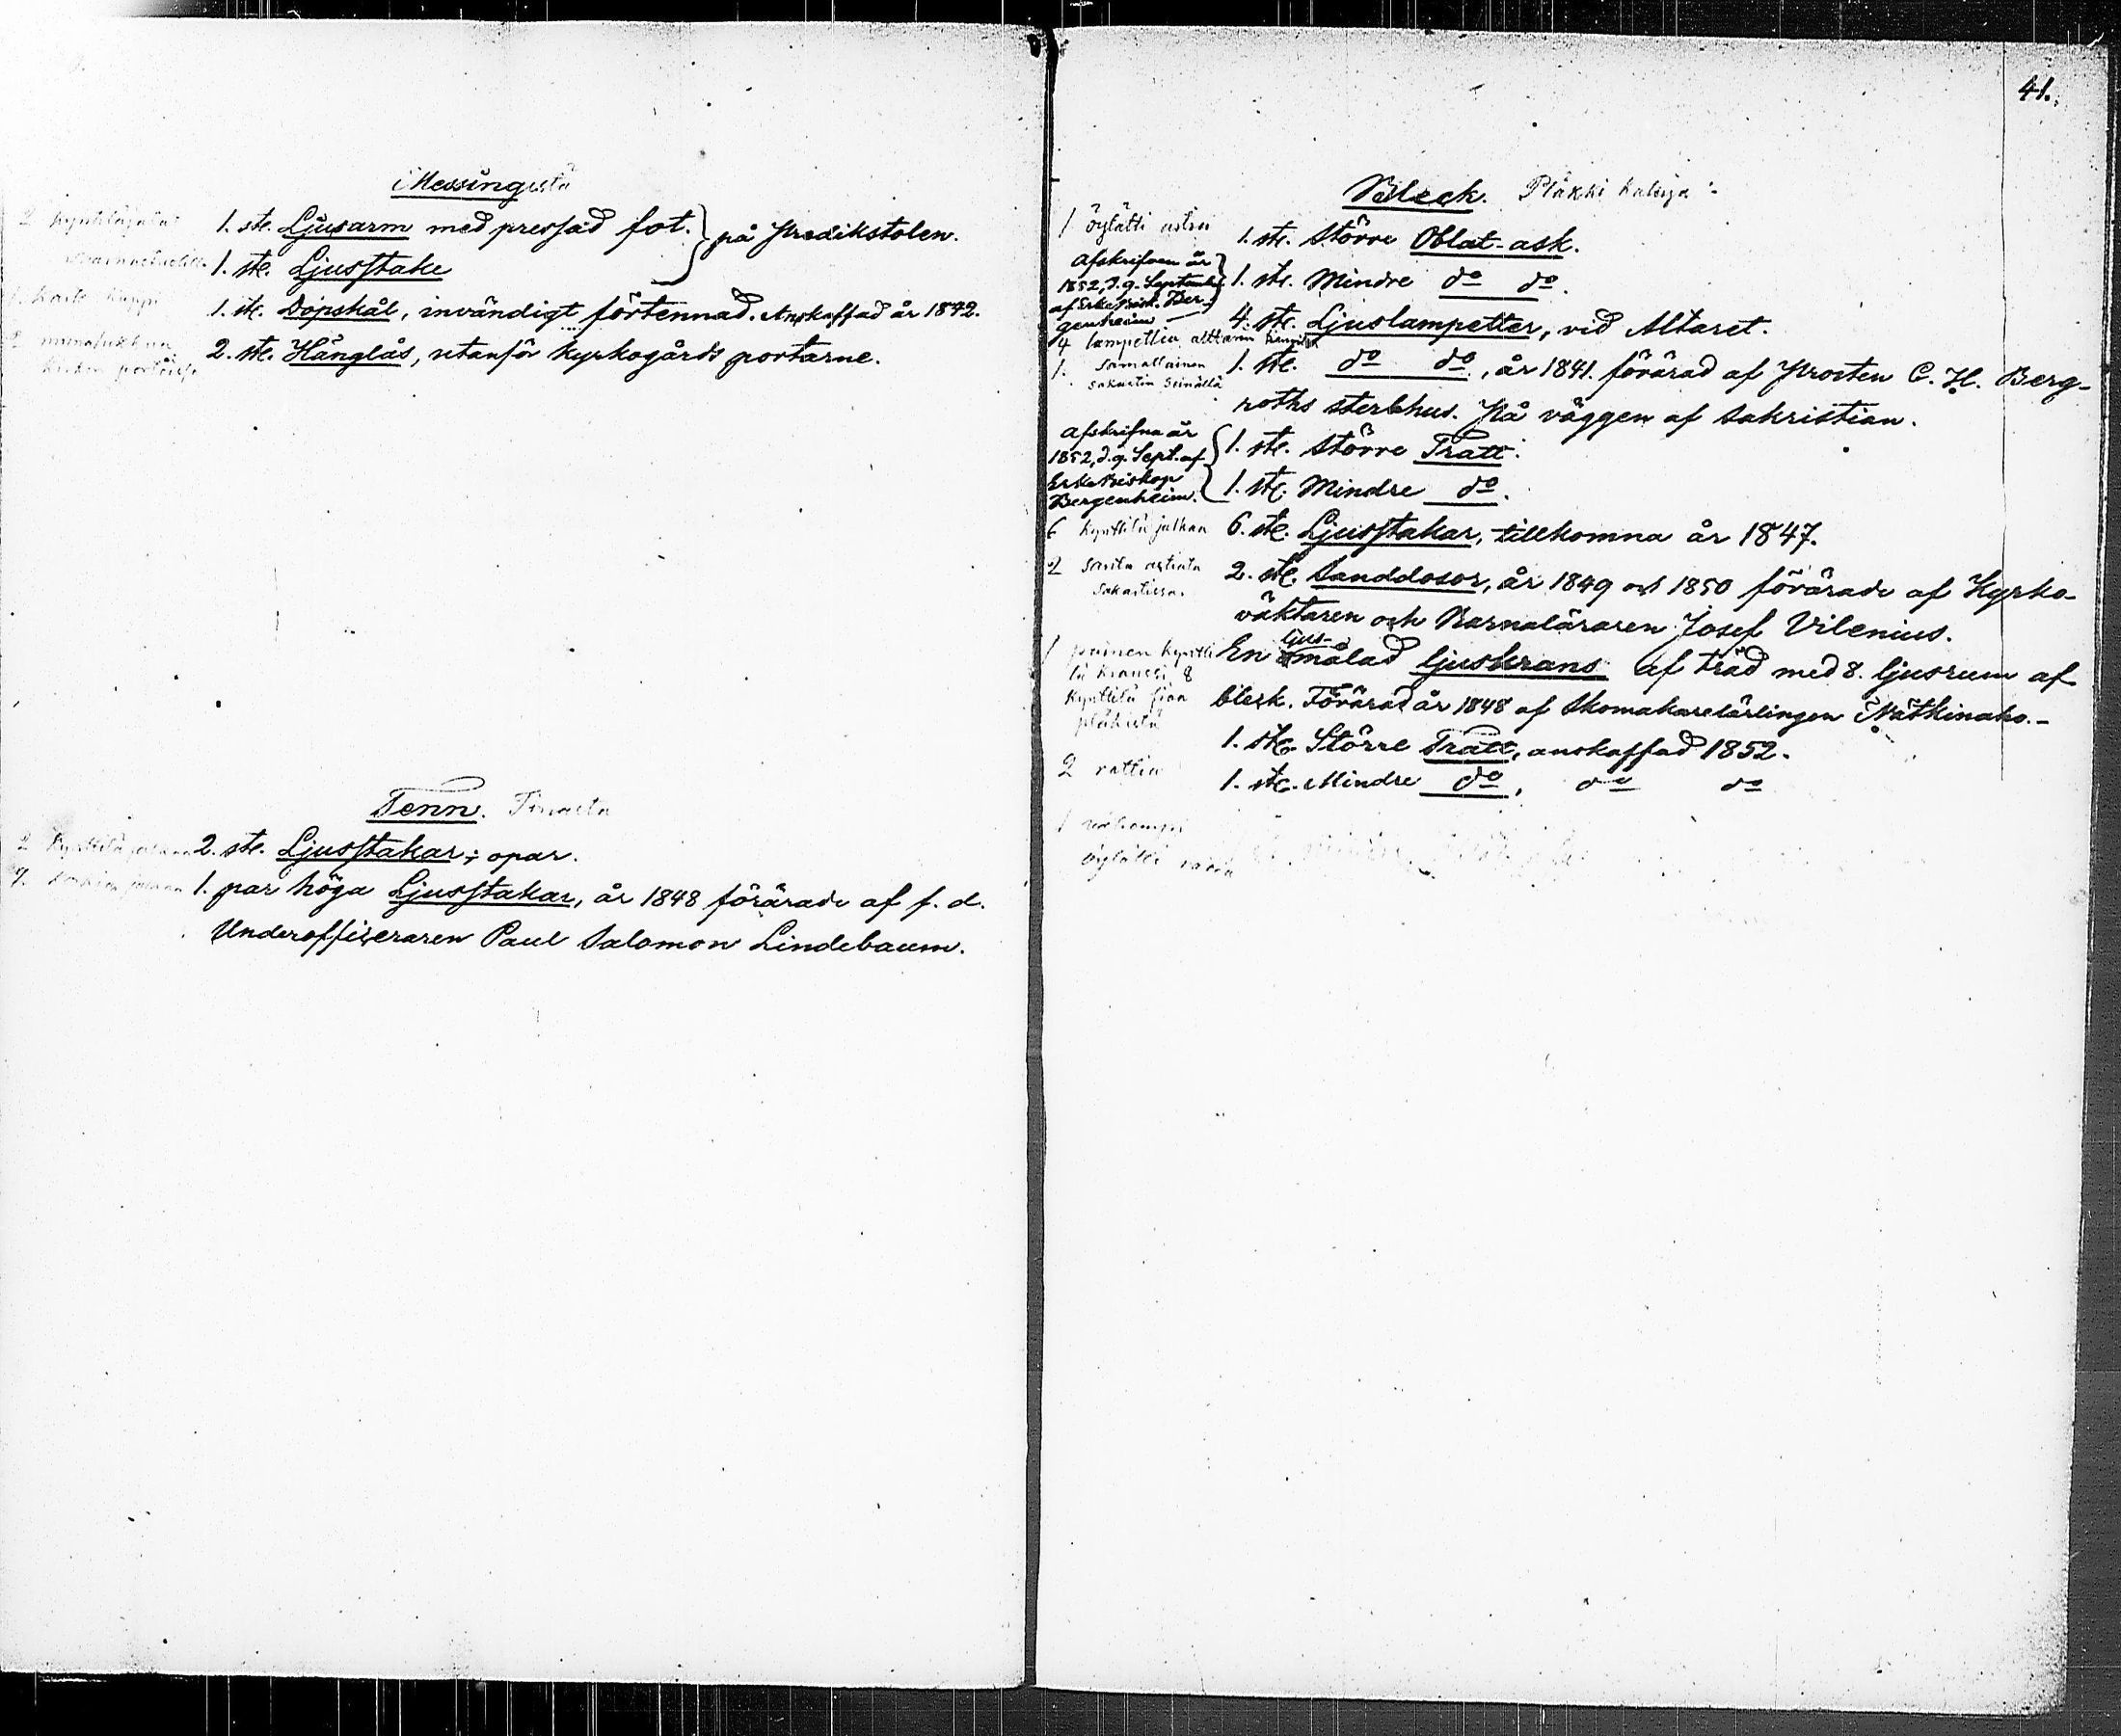 Messingistä
1. st. Ljusarm med pressad fot. } på Predikstolen.
1. st. Ljusstake
1. st. Dopskål, invändigt förtennad. Anskaffad år 1842.
2. st. Hänglås, utanför kyrkogårds portarne.
Tenn. Tinasta
2 Kynttilä jalkaa 2. st. Ljusstakar; opar.
1. par höga Ljusstakar, år 1848 förärade af f. d.
Underofficeraren Paul Salomon Lindebaum.
41.
Bleck. Pläkki kaluja:
1 öylätti astia 1. st. Större Oblat-ask.
Afskrifven år
1852, d. 9. September
af Erkebisk. Ber-
genheim
1. st. Mindre do do.
4. st. Ljuslampetter, vid Altaret.
4 lampettia alttarin
1. samallainen
sakastin seinällä
1. st. do do, år 1841. förärad af Prosten C. H. Berg-
roths sterbhus. På väggen af Sakristian.
Afskrifna år
1852, d. 9. Sept. af
Erkebiskop
Bergenheim.
1. st. Större Tratt.
1. st. Mindre do.
6 kynttilä jalkaa 6. st. Ljusstakar, tillkomna år 1847.
2 santa astiata
Sakastissa.
2. st. Sanddosor, år 1849 och 1850 förärade af Kyrko-
väktaren och Barnaläraren Josef Vilenius.
ljus-
1 puinen kyntti
lä kranssi 8
kynttilä
En målad ljuskrans af träd med 8. ljusrum af
bleck. Förärad år 1848 af Skomakarelärlingen Nätkinaho.-
1. st. Större Tratt, anskaffad 1852.
2 rattia
1. st. Mindre do, do do
1
öylätti rasia